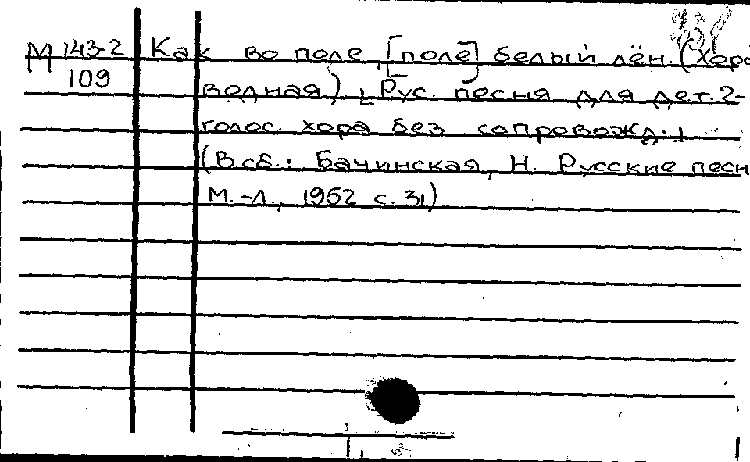 М 143-2 Как во поле, [поле] белый лён. (Хоро
109 водная). Рус. песня для дет. 2-
голос. хора без сопровожд.
(В сб.: Бачинская, Н. Русские песн
М.-Л., 1952 с. 31)